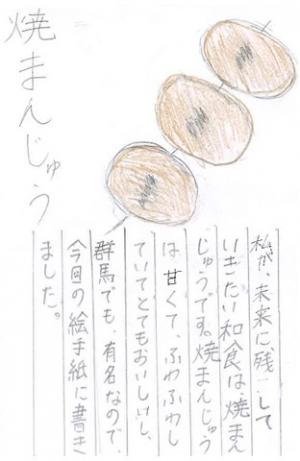 焼まんじゅう
私が、未来に残して
いきたい和食は、焼まん
じゅうです。焼まんじゅう
は甘くて、ふわふわし
ていてとてもおいしいし、
群馬でも、有名なので、
今回の絵手紙に書き
ました。